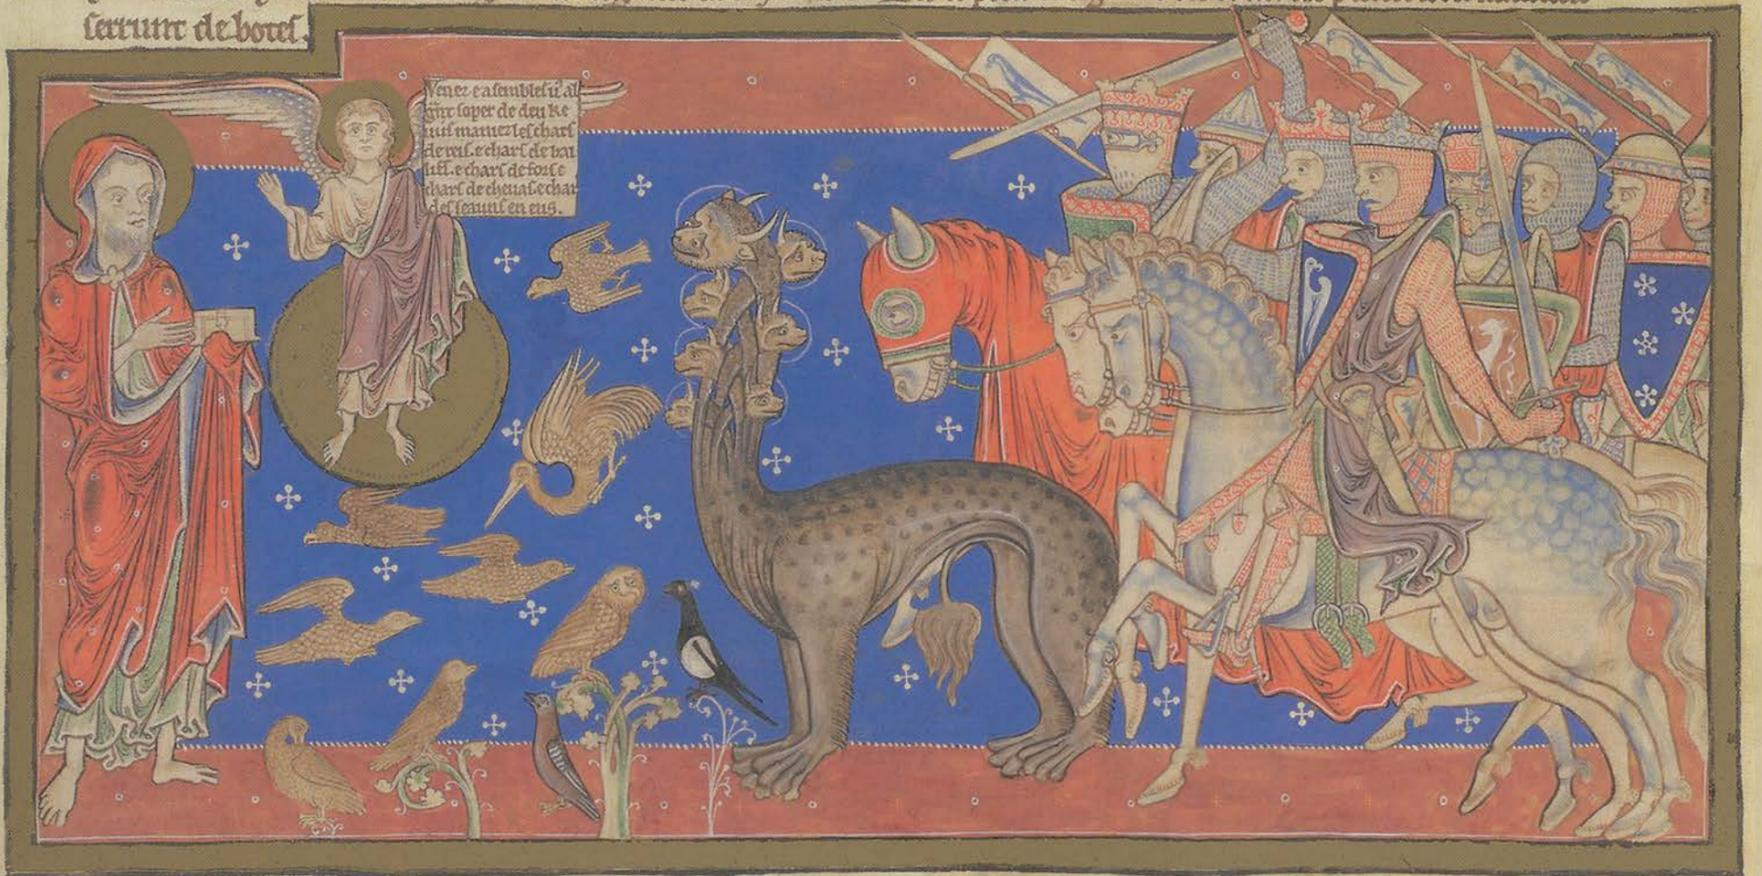 serrunt de botes.
Venez e asemblez u' al
g̃nt soper de deu ke
vus manuez les chars
de reis. e chars de bai
liff. e chars de forz e
chars de cheuals. e char
des seauns en eus.